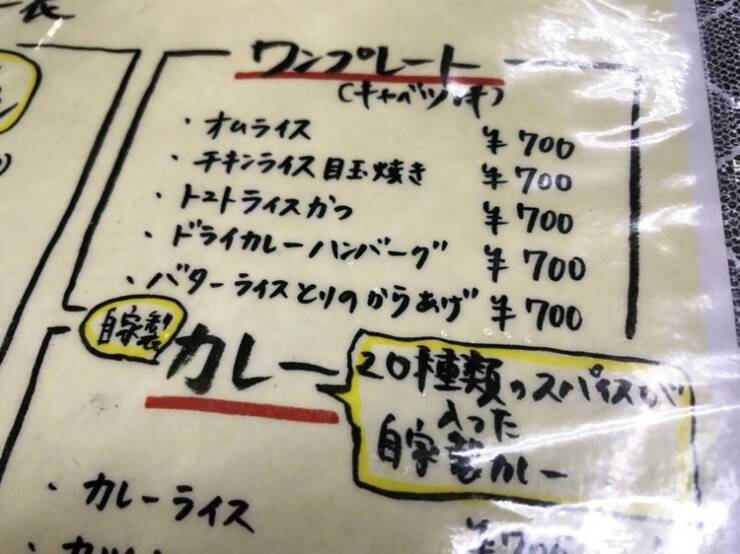 ワンプレート
(キャベツ付き)
・オムライス ¥700
・チキンライス目玉焼き ¥700
・トマトライスかつ ¥700
・ドライカレーハンバーグ ¥700
・バターライスとりのからあげ ¥700
自家製
カレー
20種類のスパイスが
入った
自家製カレー
・カレーライス ¥700